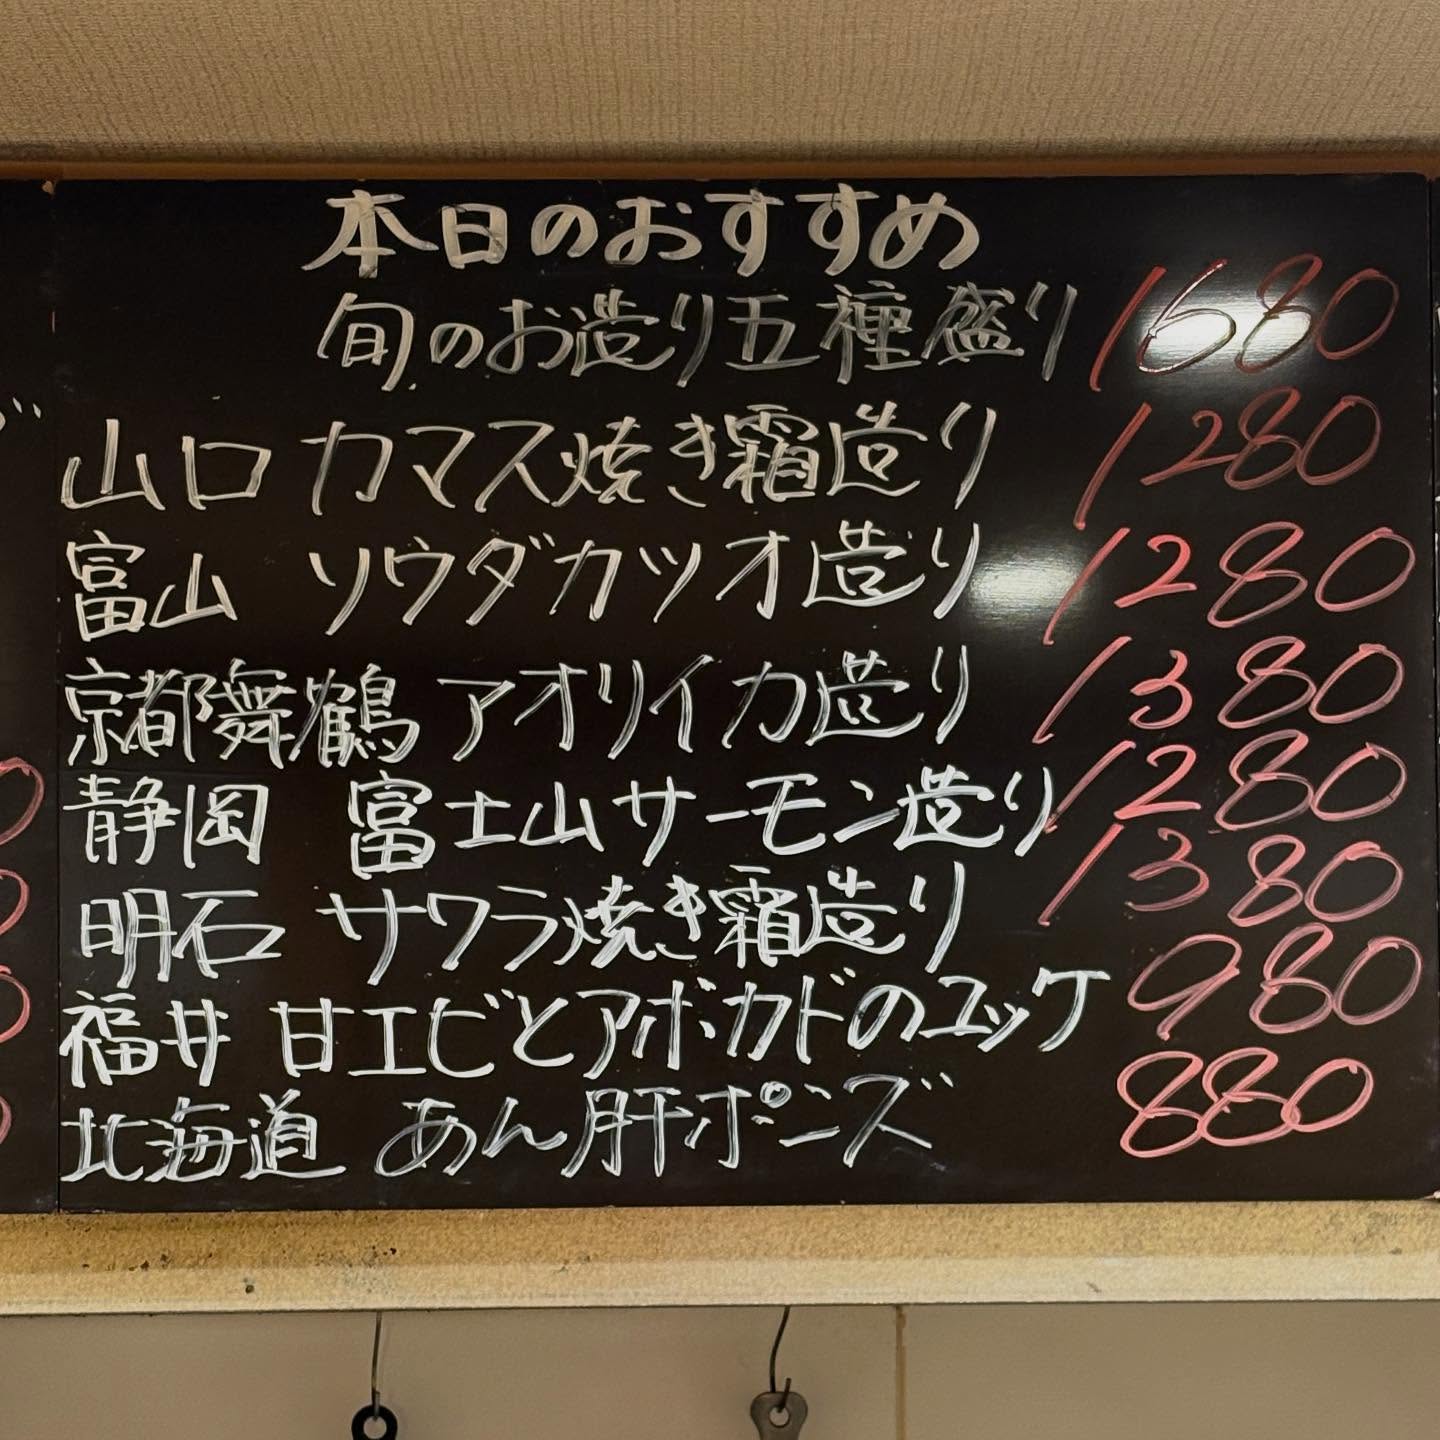 本日のおすすめ
旬のお造り五種盛り 1680
山口 カマス焼き霜造り 1280
富山 ソウダカツオ造り 1280
京都舞鶴 アオリイカ造り 1380
静岡 富士山サーモン造り 1280
明石 サワラ焼き霜造り 1380
福井 甘エビとアボカドのユッケ 980
北海道 あん肝ポンズ 880